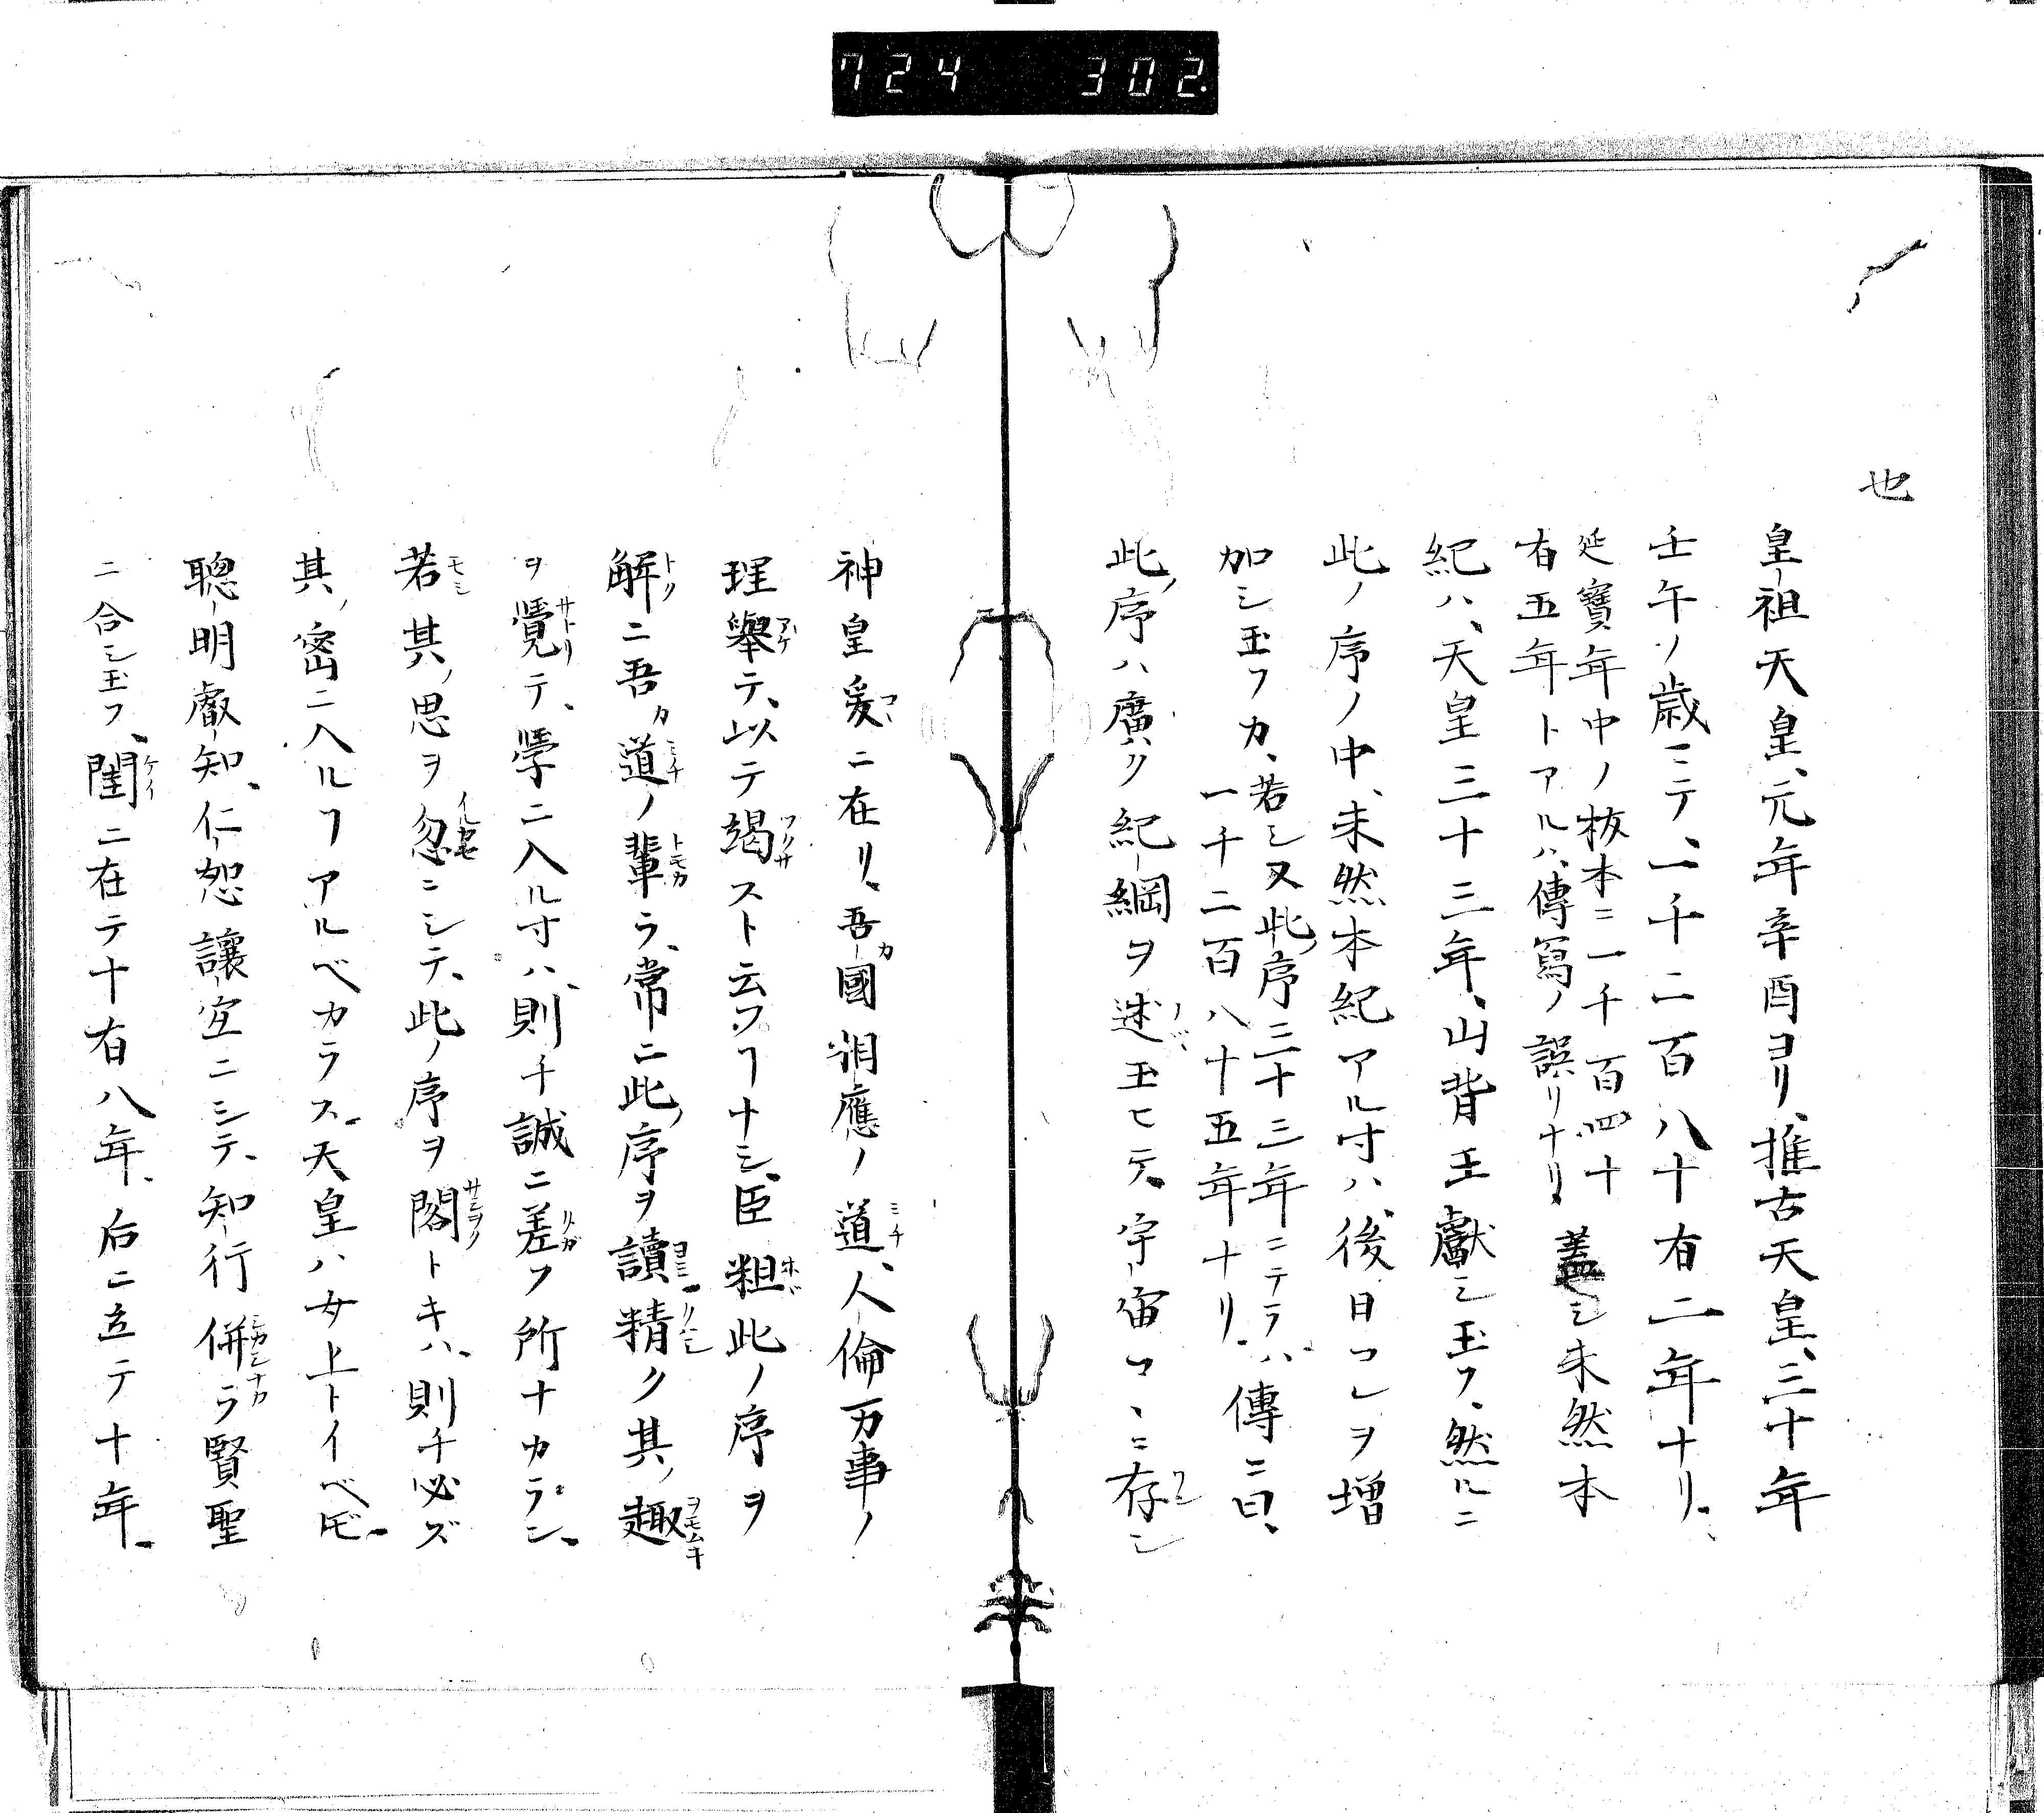 724 302.
也
皇祖天皇、元年辛酉ヨリ、推古天皇、三十年
壬午ノ歳ニテ、一千二百八十有二年ナリ、
延寶年中ノ板本ニ一千百四十
有五年トアルハ、傳寫ノ誤リナリ、蓋シ未然本
紀ハ、天皇三十三年、山背王獻シ玉フ、然ルニ
此ノ序ノ中、未然本紀アル寸ハ、後日コレヲ増
加シ玉フカ、若シ又此ノ序三十三年ニテラハ、
一千二百八十五年ナリ、傳ニ曰、
此ノ序ハ廣ク紀綱ヲ述玉ヒテ、宇宙コヽニ存シ
神皇爰ニ在リ、吾カ國相應ノ道、人倫万事ノ
理舉テ、以テ竭スト云フヿナシ、臣粗此ノ序ヲ
解ニ吾カ道ノ輩ラ、常ニ此ノ序ヲ讀、精ク其ノ趣
ヲ覺テ、學ニ入ル寸ハ、則チ誠ニ差フ所ナカラン、
若其ノ思ヲ忽ニシテ、此ノ序ヲ閣トキハ、則チ必ズ
其ノ密ニ入ルヿアルベカラス、天皇ハ女上トイヘ𪜈、
聰明叡知、仁恕讓宏ニシテ、知行併ラ賢聖
ニ合シ玉フ、閨ニ在テ十有八年、后ニ立テ十年、